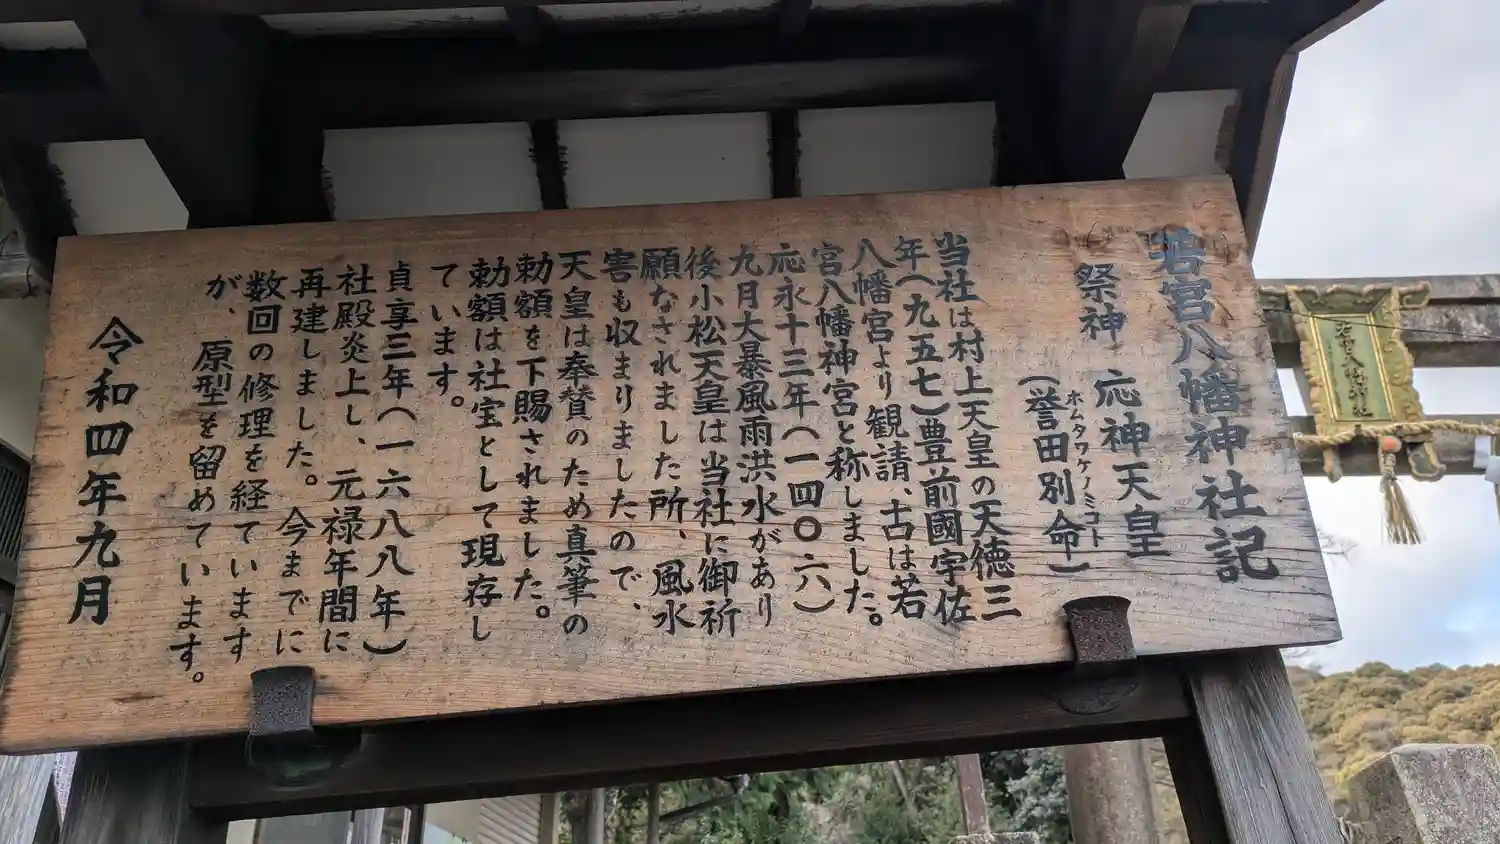 若宮八幡神社記
祭神 応神天皇
ホムタワケノミコト
(誉田別命)
当社は村上天皇の天徳三
年(九五七)豊前國宇佐
八幡宮より観請、古は若
宮八幡神宮と称しました。
応永十三年(一四〇六)
九月大暴風雨洪水があり
後小松天皇は当社に御祈
願なされました所、風水
害も収まりましたので、
天皇は奉賛のため真筆の
勅額を下賜されました。
勅額は社宝として現存し
ています。
貞享三年(一六八八年)
社殿炎上し、元禄年間に
再建しました。今までに
数回の修理を経ています
が、原型を留めています。
令和四年九月
若宮八幡神社